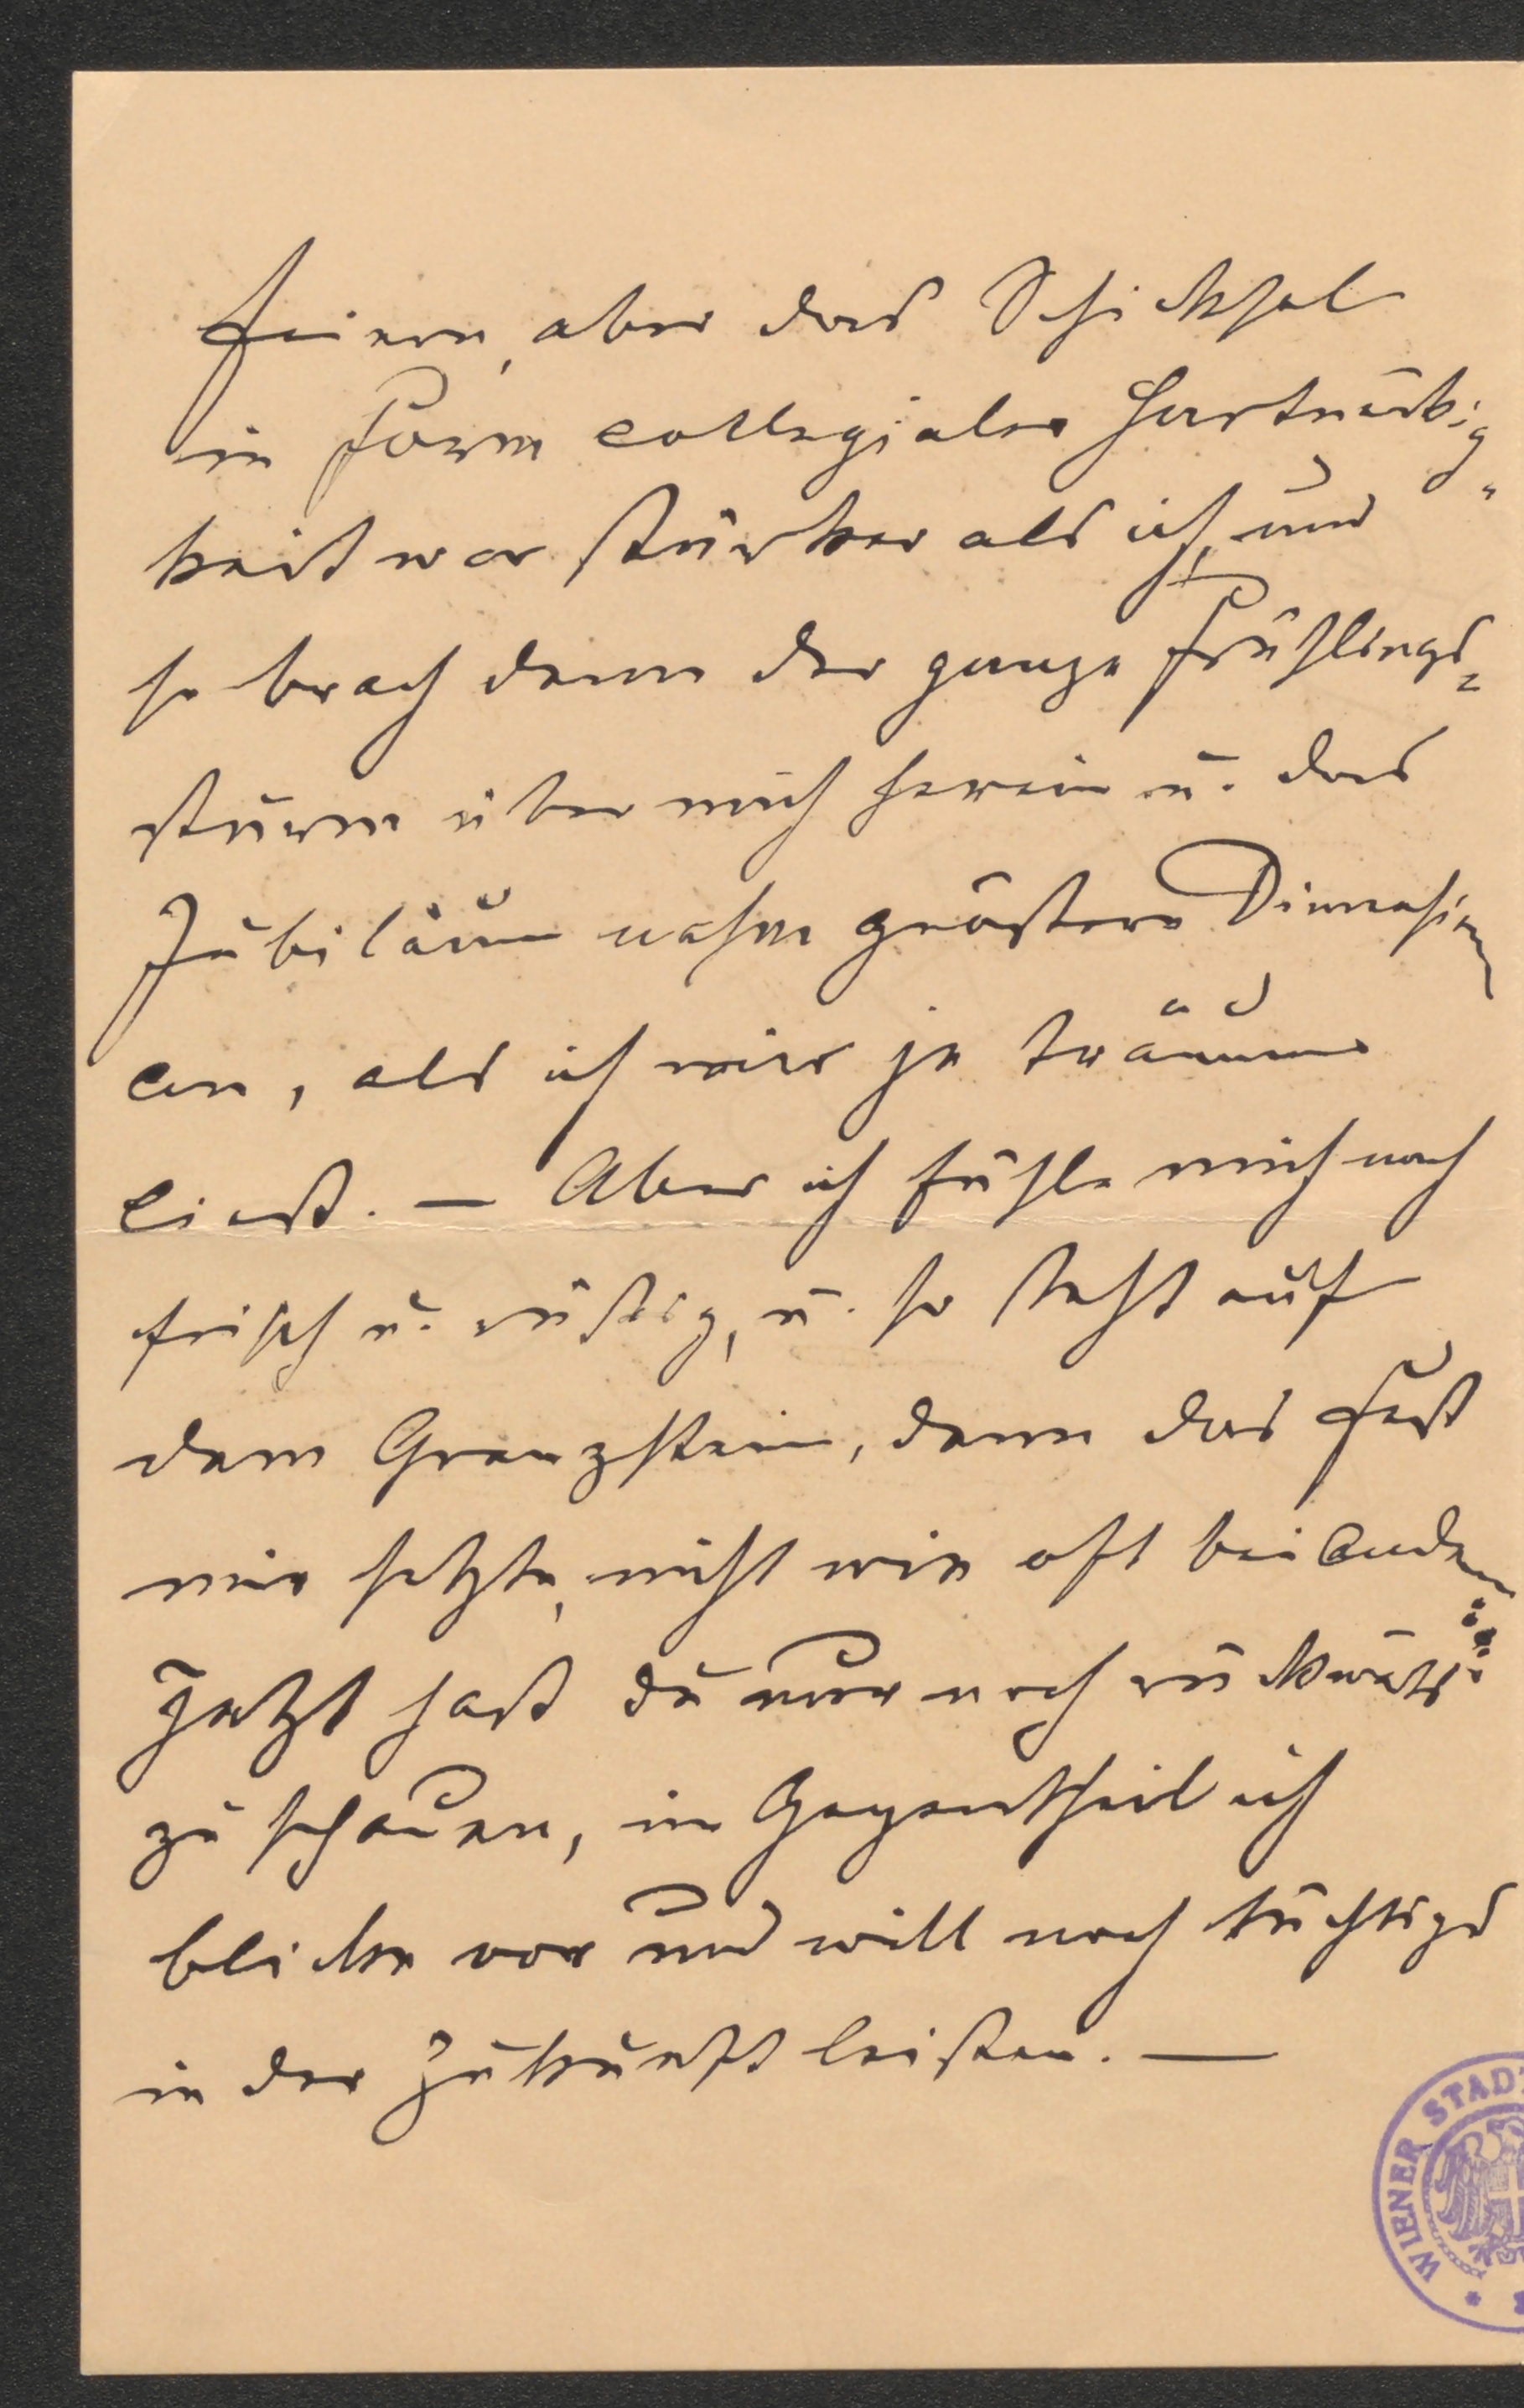 feiern, aber das Schicksal
in Form collegialer Hartnäckig-
keit war stärker als ich, und
so brach denn der ganze Frühlings-
sturm über mich herein u. das
Jubiläum nahm größere Dimension
an, als ich mir je träumen
ließ. — Aber ich fühle mich noch
frisch u. rüstig, u. so steht auf
dem Grenzstein, den das Fest
mir setzte, nicht wie oft bei Andern:
Jetzt hast du nur noch rückwärts
zu schauen, im Gegentheil ich
blicke vor und will noch tüchtiges
in der Zukunft leisten. —
WIENER STAD